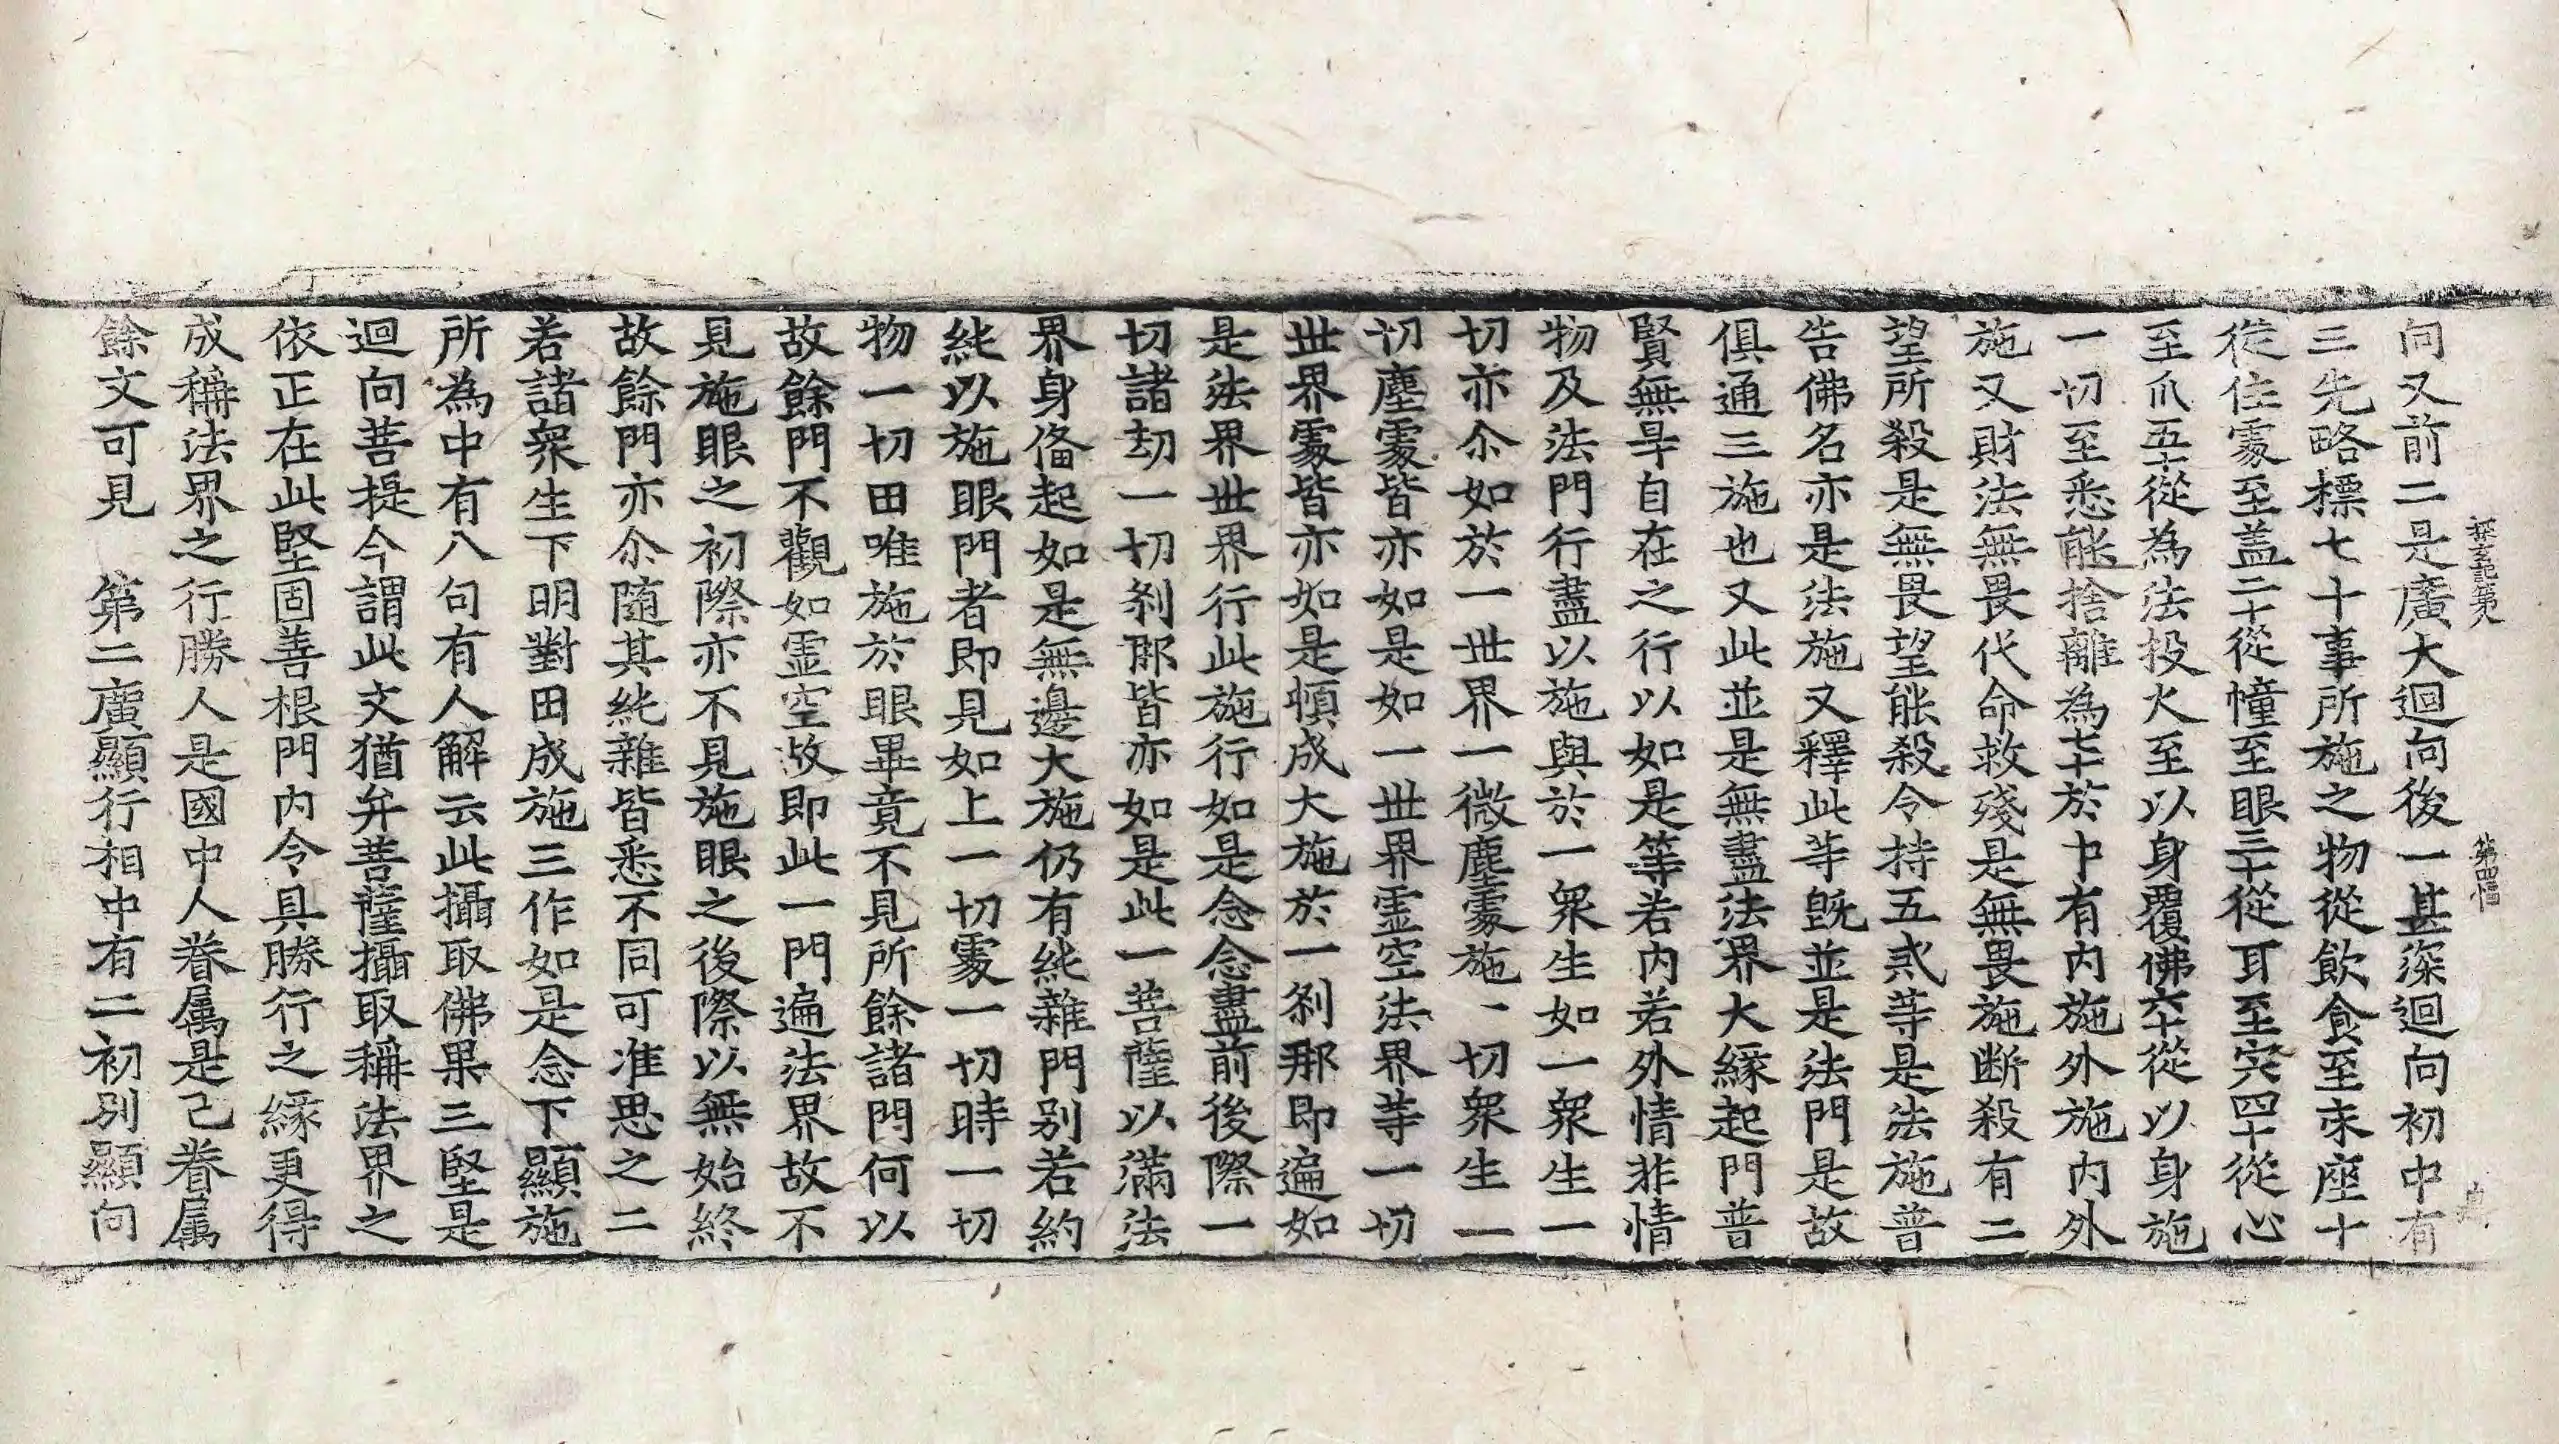 探玄記第八 第四 幅
向又前二是廣大迴向後一甚深迴向初中有
三先略標七十事所施之物從飲食至床座十
從住處至盖二十從幢至眼三十從耳至宍四十從心
至爪五十從為法投火至以身覆佛六十從以身施
一切至悉能捨離為七十於中有内施外施内外
施又財法無畏代命救殘是無畏施断殺有二
望所殺是無畏望能殺令持五戒等是法施普
告佛名亦是法施又釋此等既並是法門是故
俱通三施也又此並是無盡法界大縁起門普
賢無㝵自在之行以如是等若内若外情非情
物及法門行盡以施與於一衆生如一衆生一
切亦尒如於一世界一微塵處施一切衆生一
切塵處皆亦如是如一世界霊空法界等一切
世界處皆亦如是頓成大施於一剎那即遍如
是法界世界行此施行如是念念盡前後際一
切諸劫一切剎那皆亦如是此一菩薩以滿法
界身俻起如是無邊大施仍有純雜門别若約
純以施眼門者即見如上一切處一切時一切
物一切田唯施於眼畢竟不見所餘諸門何以
故餘門不觀如霊空故即此一門遍法界故不
見施眼之初際亦不見施眼之後際以無始終
故餘門亦尒随其純雜皆悉不同可准思之二
若諸衆生下明對田成施三作如是念下顯施
所為中有八句有人解云此攝取佛果三堅是
迴向菩提今謂此文猶弁菩薩攝取稱法界之
依正在此堅固善根門内令具勝行之縁更得
成稱法界之行勝人是國中人眷属是己眷属
餘文可見 第二廣顯行相中有二初别顯向